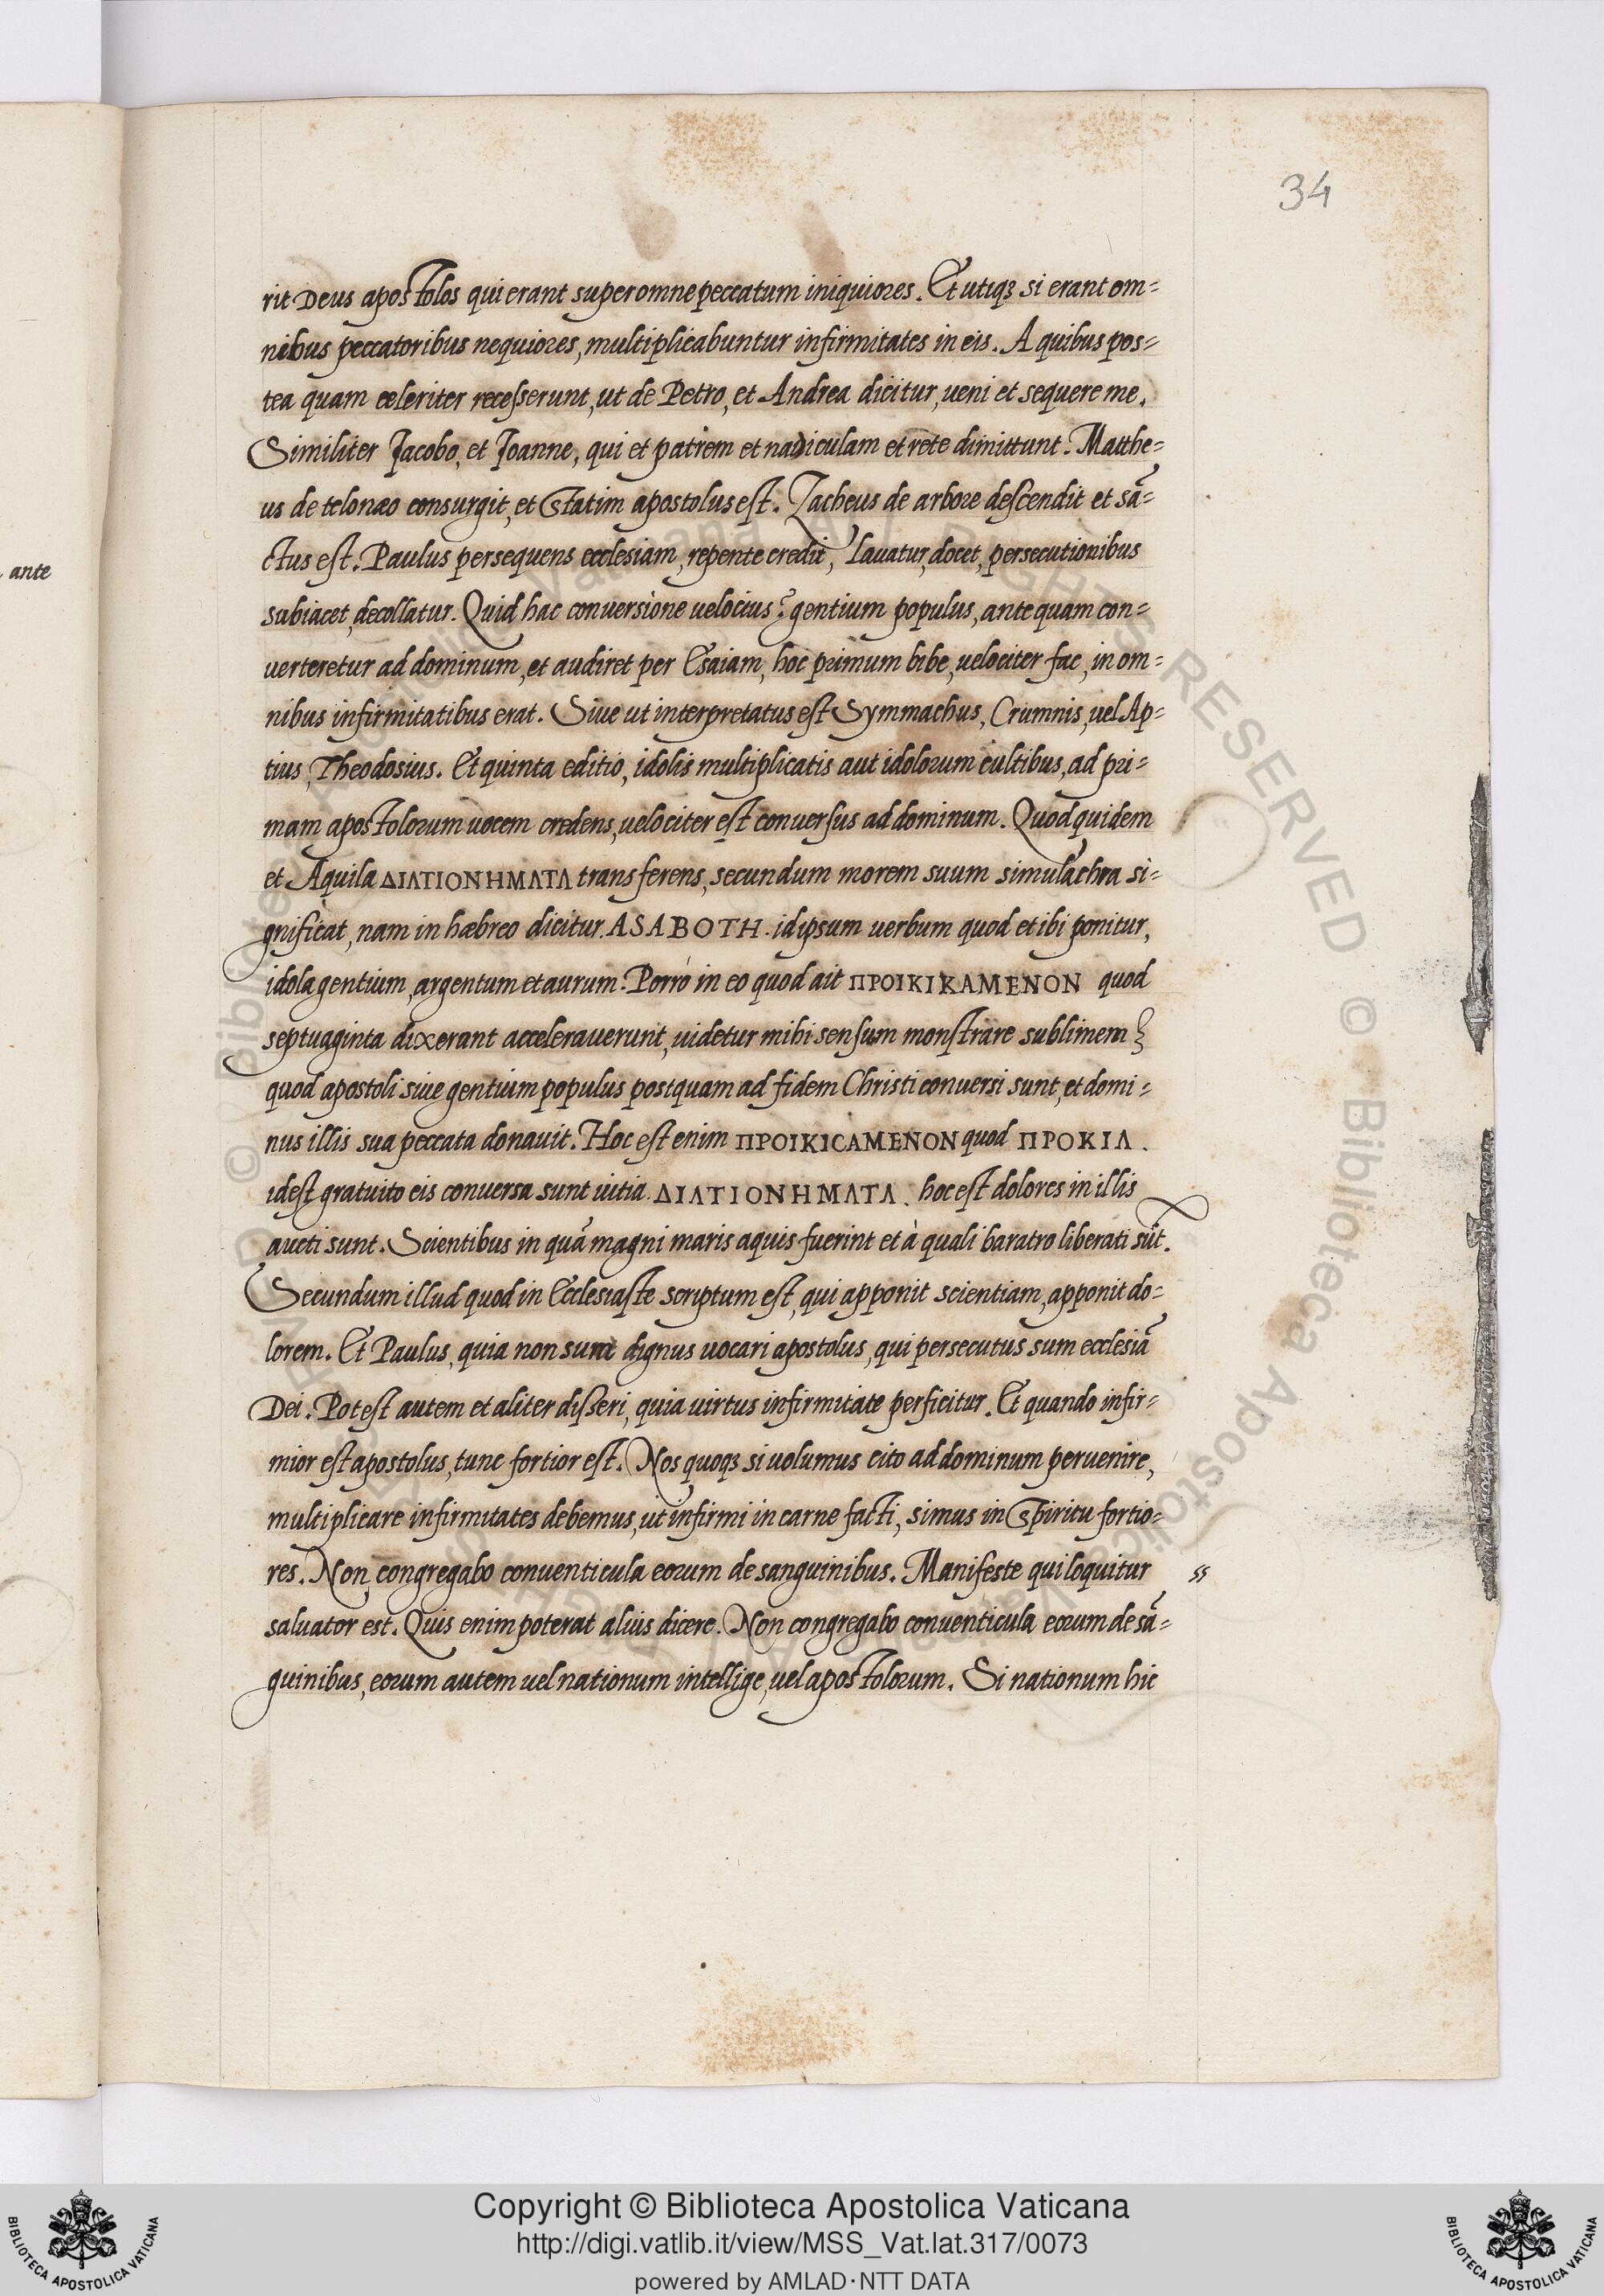 34
rit Deus apostolos qui erant super omne peccatum iniquiores. Et utiqꝫ si erant om=
nibus peccatoribus nequiores, multiplicabuntur infirmitates in eis. A quibus pos=
tea quam celeriter recesserunt, ut de Petro, et Andrea dicitur, ueni et sequere me.
Similiter Jacobo, et Joanne, qui et patrem et nauiculam et rete dimittunt. Matthe=
us de telonæo consurgit, et statim apostolus est. Zacheus de arbore descendit et sā=
ctus est. Paulus persequens ecclesiam, repente credit, lauatur, docet, persecutionibus
ante
subiacet, decollatur. Quid hac conuersione uelocius? gentium populus, ante quam con=
uerteretur ad dominum, et audiret per Esaiam, hoc primum bibe, uelociter fac, in om=
nibus infirmitatibus erat. Siue ut interpretatus est Symmachus, Crumnis, uel Ap=
tius, Theodosius. Et quinta editio, idolis multiplicatis aut idolorum cultibus, ad pri=
mam apostolorum uocem credens, uelociter est conuersus ad dominum. Quod quidem
et Aquila ΔΙΛΤΙΟΝΗΜΛΤΛ transferens, secundum morem suum simulachra si=
gnificat, nam in hæbreo dicitur. ASABOTH. idipsum uerbum quod et ibi ponitur,
idola gentium, argentum et aurum. Porrò in eo quod ait ΠΡΟΙΚΙΚΑΜΕΝΟΝ quod
septuaginta dixerant accelerauerunt, uidetur mihi sensum monstrare sublimem
quod apostoli siue gentium populus postquam ad fidem Christi conuersi sunt, et domi=
nus illis sua peccata donauit. Hoc est enim ΠΡΟΙΚΙCΑΜΕΝΟΝ quod ΠΡΟΚΙΛ.
idest gratuito eis conuersa sunt uitia. ΔΙΛΤΙΟΝΗΜΛΤΛ. hoc est dolores in illis
aucti sunt. Scientibus in quā magni maris aquis fuerint et à quali baratro liberati sūt.
Secundum illud quod in Ecclesiaste scriptum est, qui apponit scientiam, apponit do=
lorem. Et Paulus, quia non sum dignus uocari apostolus, qui persecutus sum ecclesiā
Dei. Potest autem et aliter disseri, quia uirtus infirmitate perficitur. Et quando infir=
mior est apostolus, tunc fortior est. Nos quoqꝫ si uolumus cito ad dominum peruenire,
multiplicare infirmitates debemus, ut infirmi in carne facti, simus in Spiritu fortio=
res. Non congregabo conuenticula eorum de sanguinibus. Manifeste qui loquitur
saluator est. Quis enim poterat alius dicere. Non congregabo conuenticula eorum de sā=
guinibus, eorum autem uel nationum intellige, uel apostolorum. Si nationum hic
Copyright © Biblioteca Apostolica Vaticana
http://digi.vatlib.it/view/MSS_Vat.lat.317/0073
powered by AMLAD·NTT DATA
BIBLIOTECA APOSTOLICA VATICANA
BIBLIOTECA APOSTOLICA VATICANA